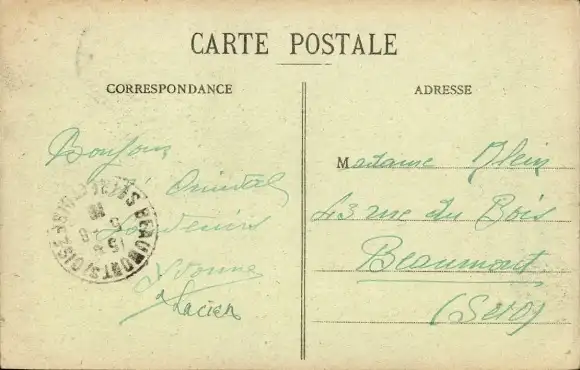 CARTE POSTALE
CORRESPONDANCE
ADRESSE
Bonjour
Amical
Souvenirs
Yvonne
Lucien
BEAUMONT S/OISE
Madame Klein
43 rue du Bois
Beaumont
(S et O)